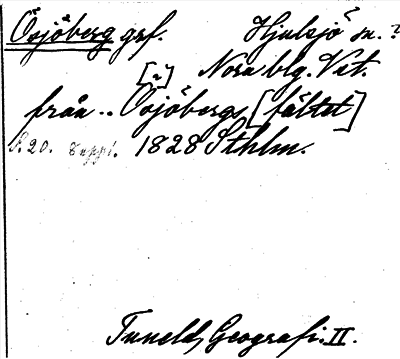 Ösjöberg grf. Hjulsjö? sn.?
Nora blg. Vst.
från .. Ösjöbergs [fältet]
S. 20. Uppl. 1828 Sthlm.
Tunelds Geografi. II.